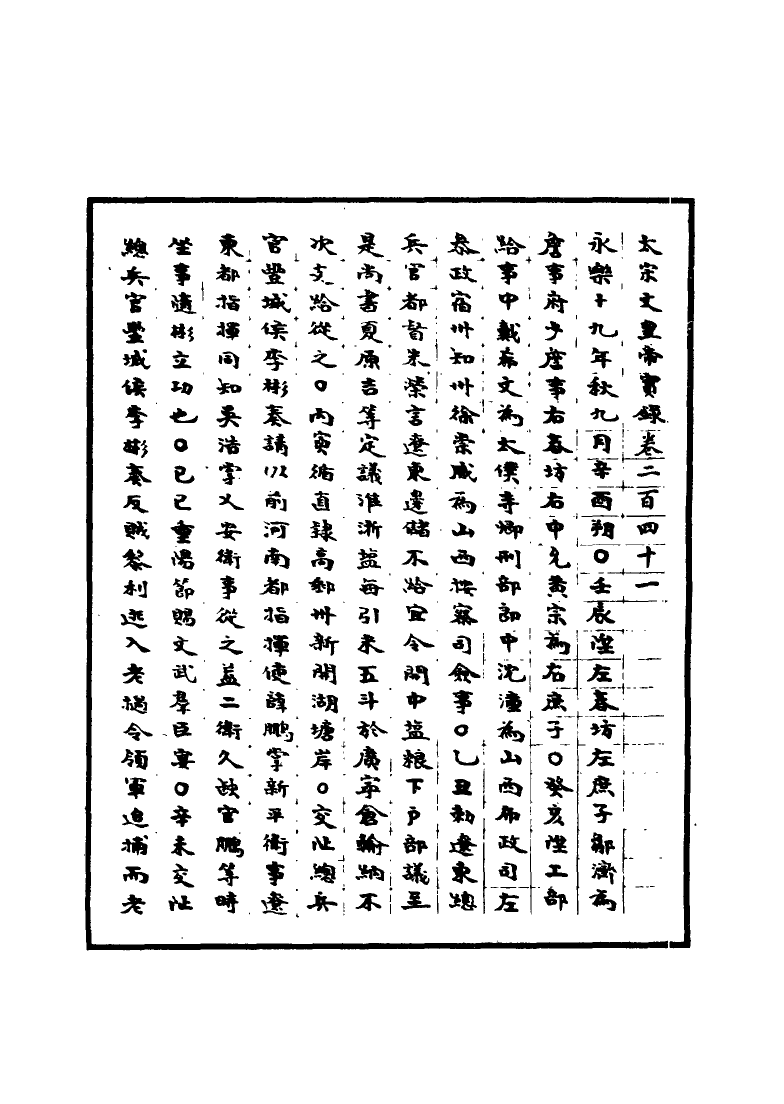 太宗文皇帝實錄卷二百四十一
永樂十九年秋九月辛酉朔○壬辰陞左春坊左庶子鄒濟為
詹事府少詹事右春坊右中允黃宗為右庶子○癸亥陞工部
給事中戴希文為太僕寺卿刑部郎中沈潼為山西布政司左
叅政宿州知州徐崇威為山西按察司僉事○乙丑勑遼東總
兵官都督朱榮言遼東邊儲不給宜令開中盐粮下戶部議至
是尚書夏原吉等定議淮浙盐每引米五斗於廣寜倉輸納不
次支給從之○丙寅循直隸高郵州新開湖塘岸○交阯總兵
官豐城侯李彬奏請以前河南都指揮使薛鵬掌新平衛事遼
東都指揮同知吳浩掌乂安衛事從之盖二衛久缺官鵬等時
坐事隨彬立功也○己巳重陽節賜文武羣臣宴○辛未交阯
總兵官豐城侯李彬奏反賊黎利迯入老撾令領軍追捕而老